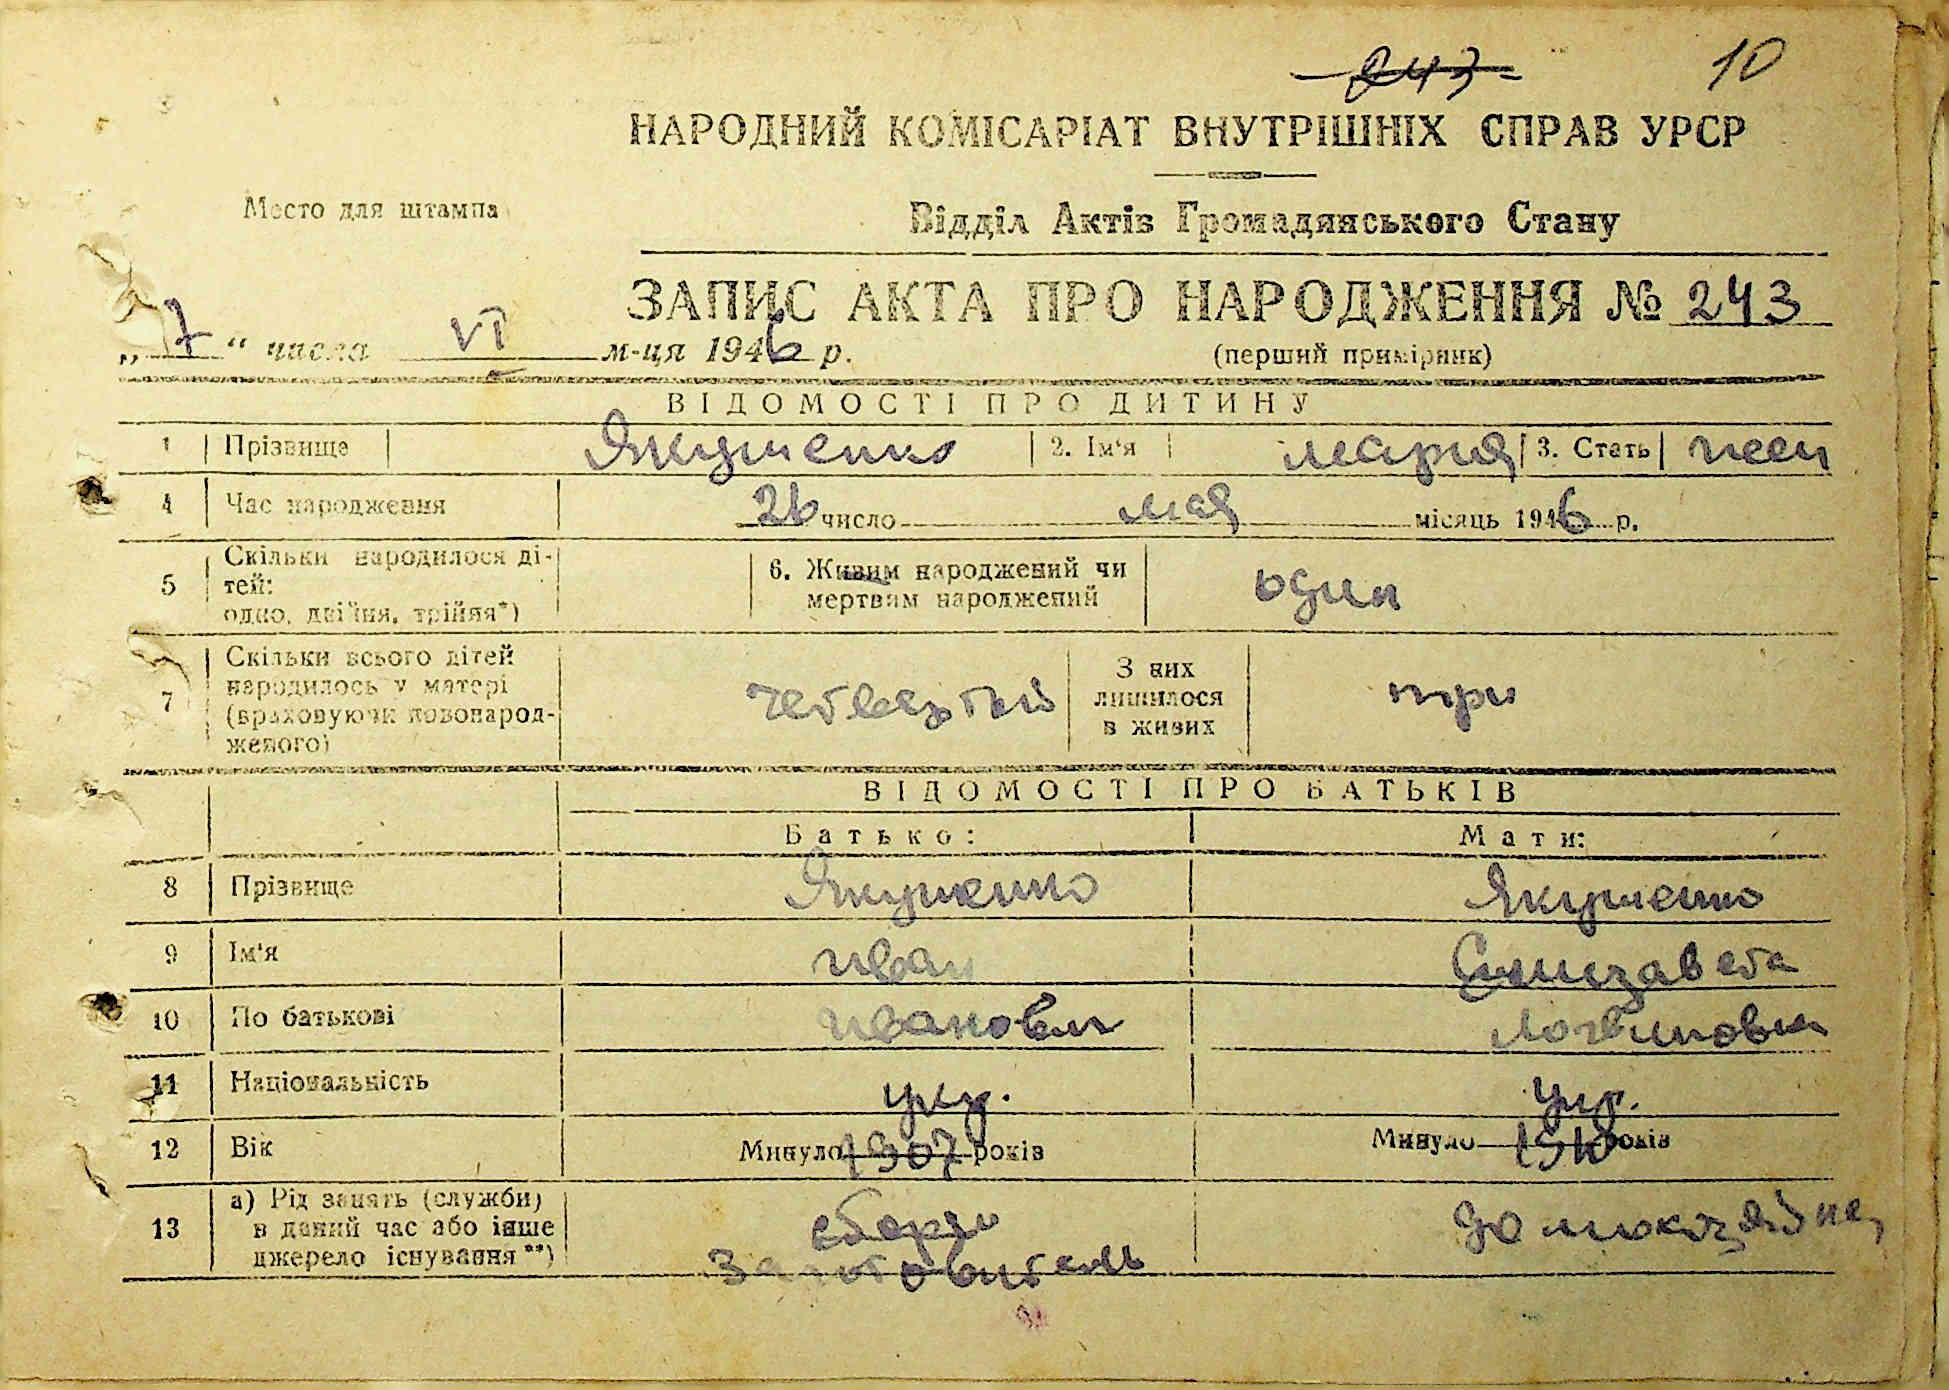 243
10
НАРОДНИЙ КОМІСАРІАТ ВНУТРІШНІХ СПРАВ УРСР
Место для штампа
Відділ Актів Громадянського Стану
ЗАПИС АКТА ПРО НАРОДЖЕННЯ № 243
„ 7 “ числа VI м-ця 1946 р.
(перший примірник)
ВІДОМОСТІ ПРО ДИТИНУ
1 Прізвище Якушенко 2. Ім'я Мария 3. Стать жен
4 Час народження 26 число мая місяць 1946 р.
5 Скільки народилося дітей: одно, двійня, трійня*) 6. Живим народжений чи мертвим народжений один
7 Скільки всього дітей народилось у матері (враховуючи новонародженого) четвертый З них лишилося в живих три
ВІДОМОСТІ ПРО БАТЬКІВ
Батько: Мати:
8 Прізвище Якушенко Якушенко
9 Ім'я Иван Елизавета
10 По батькові Иванович Логвиновна
11 Національність укр. укр.
12 Вік Минуло 1907 років Минуло 1910 років
13 а) Рід занять (служби) в даний час або інше джерело існування**) заготовитель домохозяйка